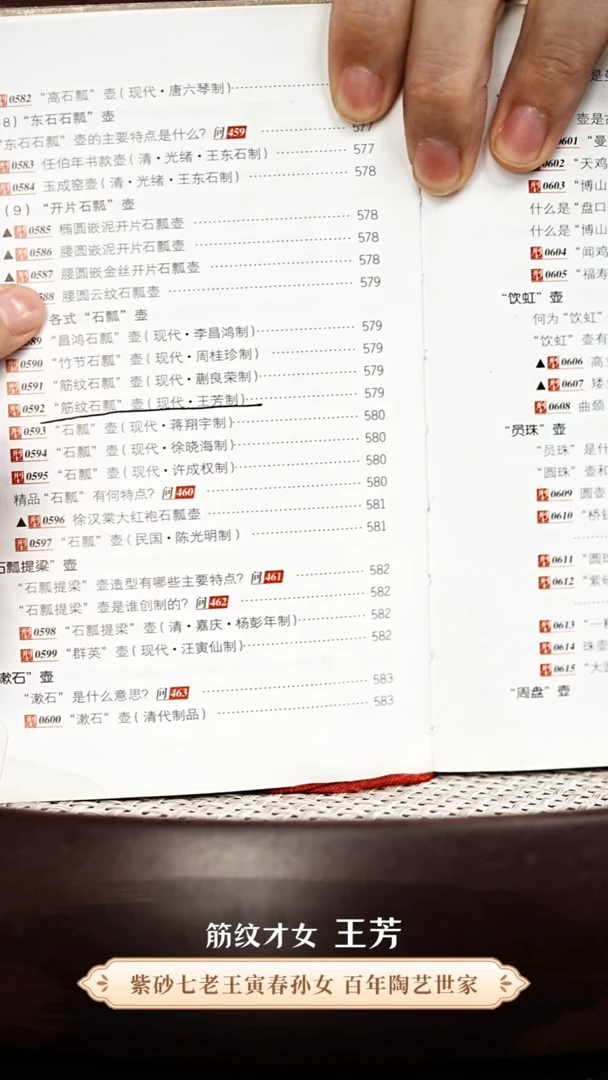 型0582 "高石瓢" 壶(现代·唐六琴制)
8)"东石石瓢" 壶
东石石瓢" 壶的主要特点是什么? 问459 577
型0583 任伯年书款壶(清·光绪·王东石制) 577
型0584 玉成窑壶(清·光绪·王东石制) 578
(9) "开片石瓢" 壶
▲型0585 椭圆嵌泥开片石瓢壶 578
▲型0586 腰圆嵌泥开片石瓢壶 578
▲型0587 腰圆嵌金丝开片石瓢壶 578
588 腰圆云纹石瓢壶 579
各式 "石瓢" 壶
589 "昌鸿石瓢" 壶(现代·李昌鸿制) 579
型0590 "竹节石瓢" 壶(现代·周桂珍制) 579
型0591 "筋纹石瓢" 壶(现代·蒯良荣制) 579
型0592 "筋纹石瓢" 壶(现代·王芳制) 579
型0593 "石瓢" 壶(现代·蒋翔宇制) 580
型0594 "石瓢" 壶(现代·徐晓海制) 580
型0595 "石瓢" 壶(现代·许成权制) 580
精品 "石瓢" 有何特点? 问460 580
▲型0596 徐汉棠大红袍石瓢壶 581
型0597 "石瓢" 壶(民国·陈光明制) 581
石瓢提梁" 壶
"石瓢提梁" 壶造型有哪些主要特点? 问461 582
"石瓢提梁" 壶是谁创制的? 问462 582
型0598 "石瓢提梁" 壶(清·嘉庆·杨彭年制) 582
型0599 "群英" 壶(现代·汪寅仙制) 582
漱石" 壶
"漱石" 是什么意思? 问463 583
型0600 "漱石" 壶(清代制品) 583
壶是
0601 "曼
0602 "天鸡
型0603 "博山
什么是 "盘口
什么是 "博山
型0604 "闻鸡
型0605 "福寿
"饮虹" 壶
何为 "饮虹"
"饮虹" 壶有
▲型0606 高
▲型0607 矮
型0608 曲颈
"员珠" 壶
"员珠" 是什
"圆珠" 壶和
型0609 圆壶
型0610 "桥
型0611 "圆
型0612 "紫
型0613 "一
型0614 珠壶
型0615 "大
"周盘" 壶
筋纹才女 王芳
紫砂七老王寅春孙女 百年陶艺世家